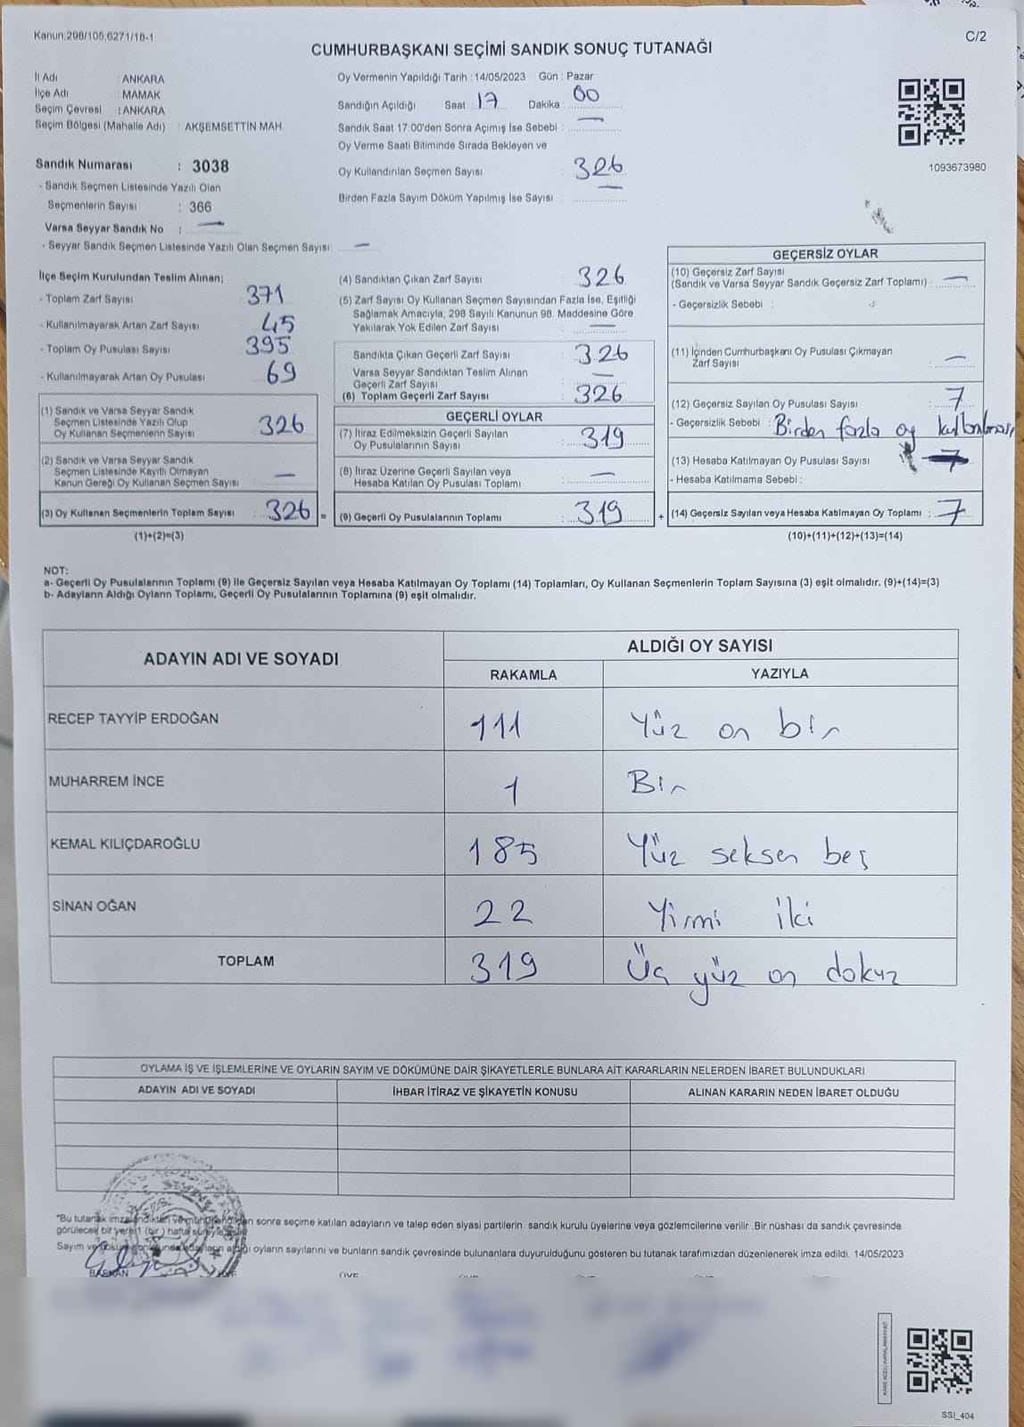 Kanun:298/105,6271/18-1
C/2
CUMHURBAŞKANI SEÇİMİ SANDIK SONUÇ TUTANAĞI
İl Adı : ANKARA
İlçe Adı : MAMAK
Seçim Çevresi : ANKARA
Seçim Bölgesi (Mahalle Adı) : AKŞEMSETTİN MAH.
Sandık Numarası : 3038
- Sandık Seçmen Listesinde Yazılı Olan
Seçmenlerin Sayısı : 366
Varsa Seyyar Sandık No : —
- Seyyar Sandık Seçmen Listesinde Yazılı Olan Seçmen Sayısı: —
Oy Vermenin Yapıldığı Tarih : 14/05/2023 Gün : Pazar
Sandığın Açıldığı Saat 17 Dakika : 00
Sandık Saat 17:00'den Sonra Açımış İse Sebebi : —
Oy Verme Saati Bitiminde Sırada Bekleyen ve
Oy Kullandırılan Seçmen Sayısı : 326
Birden Fazla Sayım Döküm Yapılmış İse Sayısı : —
1093673980
İlçe Seçim Kurulundan Teslim Alınan;
- Toplam Zarf Sayısı 371
- Kullanılmayarak Artan Zarf Sayısı 45
- Toplam Oy Pusulası Sayısı 395
- Kullanılmayarak Artan Oy Pusulası 69
(1) Sandık ve Varsa Seyyar Sandık
Seçmen Listesinde Yazılı Olup
Oy Kullanan Seçmenlerin Sayısı 326
(2) Sandık ve Varsa Seyyar Sandık
Seçmen Listesinde Kayıtlı Olmayan
Kanun Gereği Oy Kullanan Seçmen Sayısı —
(3) Oy Kullanan Seçmenlerin Toplam Sayısı 326 =
(1)+(2)=(3)
(4) Sandıktan Çıkan Zarf Sayısı 326
(5) Zarf Sayısı Oy Kullanan Seçmen Sayısından Fazla İse, Eşitliği
Sağlamak Amacıyla, 298 Sayılı Kanunun 98. Maddesine Göre
Yakılarak Yok Edilen Zarf Sayısı —
Sandıkta Çıkan Geçerli Zarf Sayısı : 326
Varsa Seyyar Sandıktan Teslim Alınan
Geçerli Zarf Sayısı —
(6) Toplam Geçerli Zarf Sayısı 326
GEÇERLİ OYLAR
(7) İtiraz Edilmeksizin Geçerli Sayılan
Oy Pusulalarının Sayısı : 319
(8) İtiraz Üzerine Geçerli Sayılan veya
Hesaba Katılan Oy Pusulası Toplamı : —
(9) Geçerli Oy Pusulalarının Toplamı : 319 +
GEÇERSİZ OYLAR
(10) Geçersiz Zarf Sayısı
(Sandık ve Varsa Seyyar Sandık Geçersiz Zarf Toplamı) : —
- Geçersizlik Sebebi :
(11) İçinden Cumhurbaşkanı Oy Pusulası Çıkmayan
Zarf Sayısı —
(12) Geçersiz Sayılan Oy Pusulası Sayısı : 7
- Geçersizlik Sebebi : Birden fazla oy kullanılması
(13) Hesaba Katılmayan Oy Pusulası Sayısı
- Hesaba Katılmama Sebebi :
(14) Geçersiz Sayılan veya Hesaba Katılmayan Oy Toplamı : 7
(10)+(11)+(12)+(13)=(14)
NOT:
a- Geçerli Oy Pusulalarının Toplamı (9) ile Geçersiz Sayılan veya Hesaba Katılmayan Oy Toplamı (14) Toplamları, Oy Kullanan Seçmenlerin Toplam Sayısına (3) eşit olmalıdır. (9)+(14)=(3)
b- Adayların Aldığı Oyların Toplamı, Geçerli Oy Pusulalarının Toplamına (9) eşit olmalıdır.
ADAYIN ADI VE SOYADI ALDIĞI OY SAYISI
RAKAMLA YAZIYLA
RECEP TAYYİP ERDOĞAN 111 Yüz on bir
MUHARREM İNCE 1 Bir
KEMAL KILIÇDAROĞLU 185 Yüz seksen beş
SİNAN OĞAN 22 Yirmi iki
TOPLAM 319 Üç yüz on dokuz
OYLAMA İŞ VE İŞLEMLERİNE VE OYLARIN SAYIM VE DÖKÜMÜNE DAİR ŞİKAYETLERLE BUNLARA AİT KARARLARIN NELERDEN İBARET BULUNDUKLARI
ADAYIN ADI VE SOYADI İHBAR İTİRAZ VE ŞİKAYETİN KONUSU ALINAN KARARIN NEDEN İBARET OLDUĞU
"Bu tutanak sonra seçime katılan adayların ve talep eden siyasi partilerin sandık kurulu üyelerine veya gözlemcilerine verilir. Bir nüshası da sandık çevresinde
görülecek bir yere
Sayım ve oyların sayılarını ve bunların sandık çevresinde bulunanlara duyurulduğunu gösteren bu tutanak tarafımızdan düzenlenerek imza edildi. 14/05/2023
BAŞKAN
SSI_404